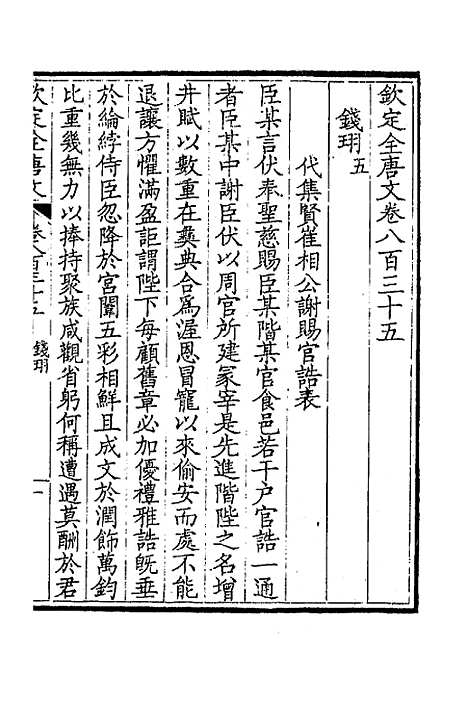 欽定全唐文卷八百三十五
錢珝五
代集賢崔相公謝賜官誥表
臣某言伏奉聖慈賜臣某階某官食邑若干户官誥一通
者臣某中謝臣伏以周官所建冢宰是先進階陛之名增
井賦以數重在彝典合爲渥恩冒寵以來偷安而處不能
退讓方懼滿盈詎謂陛下每顧舊章必加優禮雅誥旣垂
於綸綍侍臣忽降於宮闈五彩相鮮且成文於潤飾萬鈞
比重幾無力以捧持聚族咸觀省躬何稱遭遇莫酬於君
欽定全唐文 卷八百三十五 錢珝 一